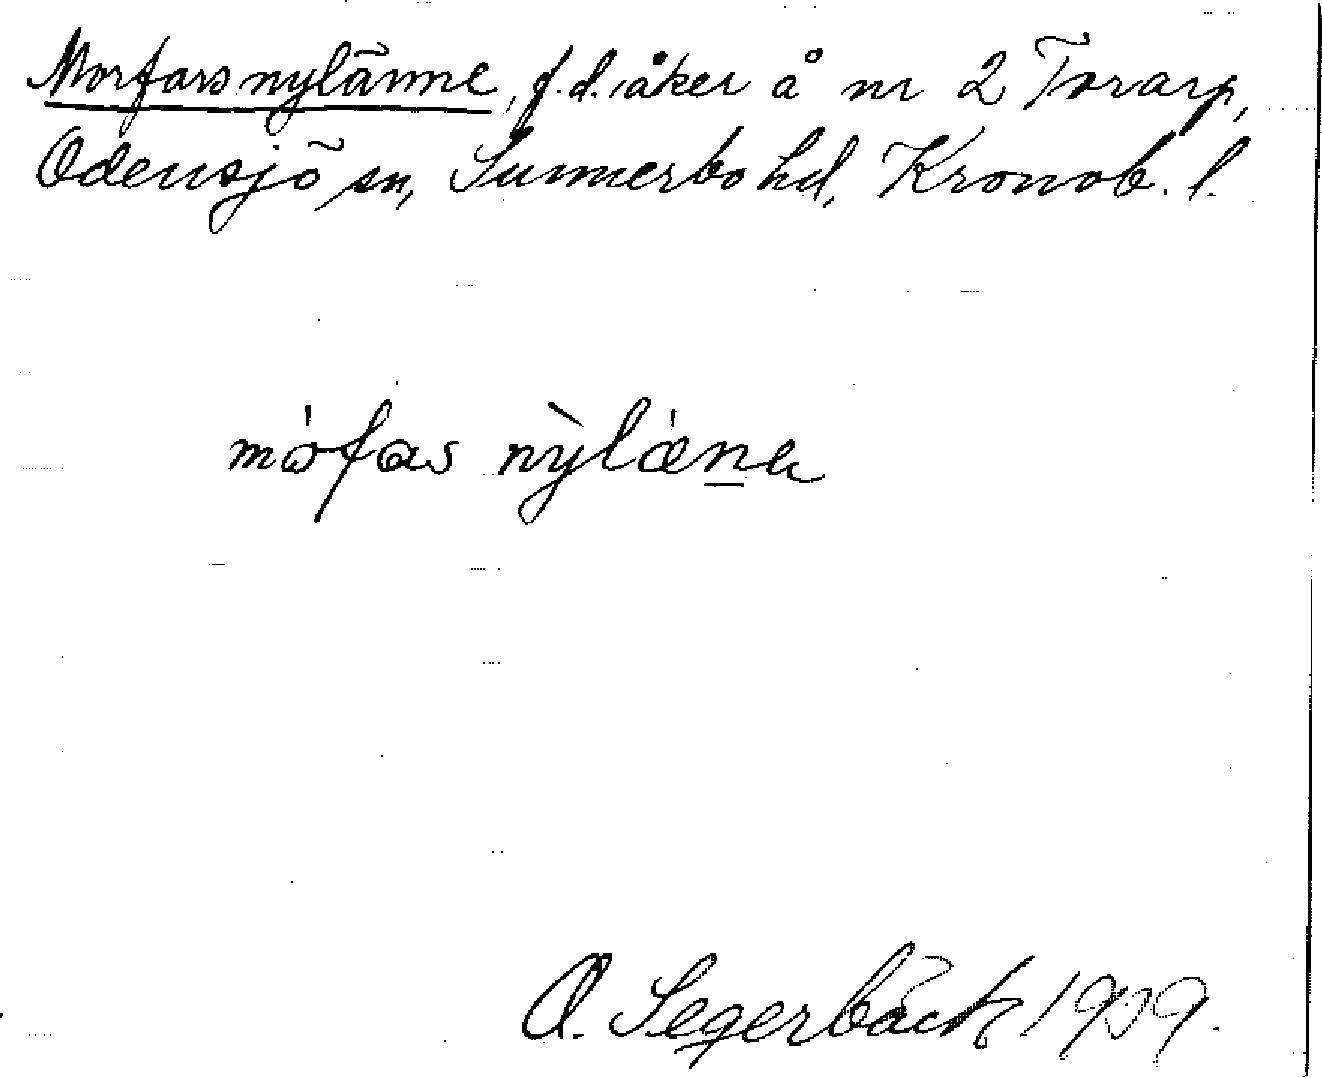 Morfars nylänne, f.d. åker å nr 2 Torarp,
Odensjö sn, Sunnerbo hd, Kronob. l.
mófas nỳlǽnə
O. Segerbäck 1909.